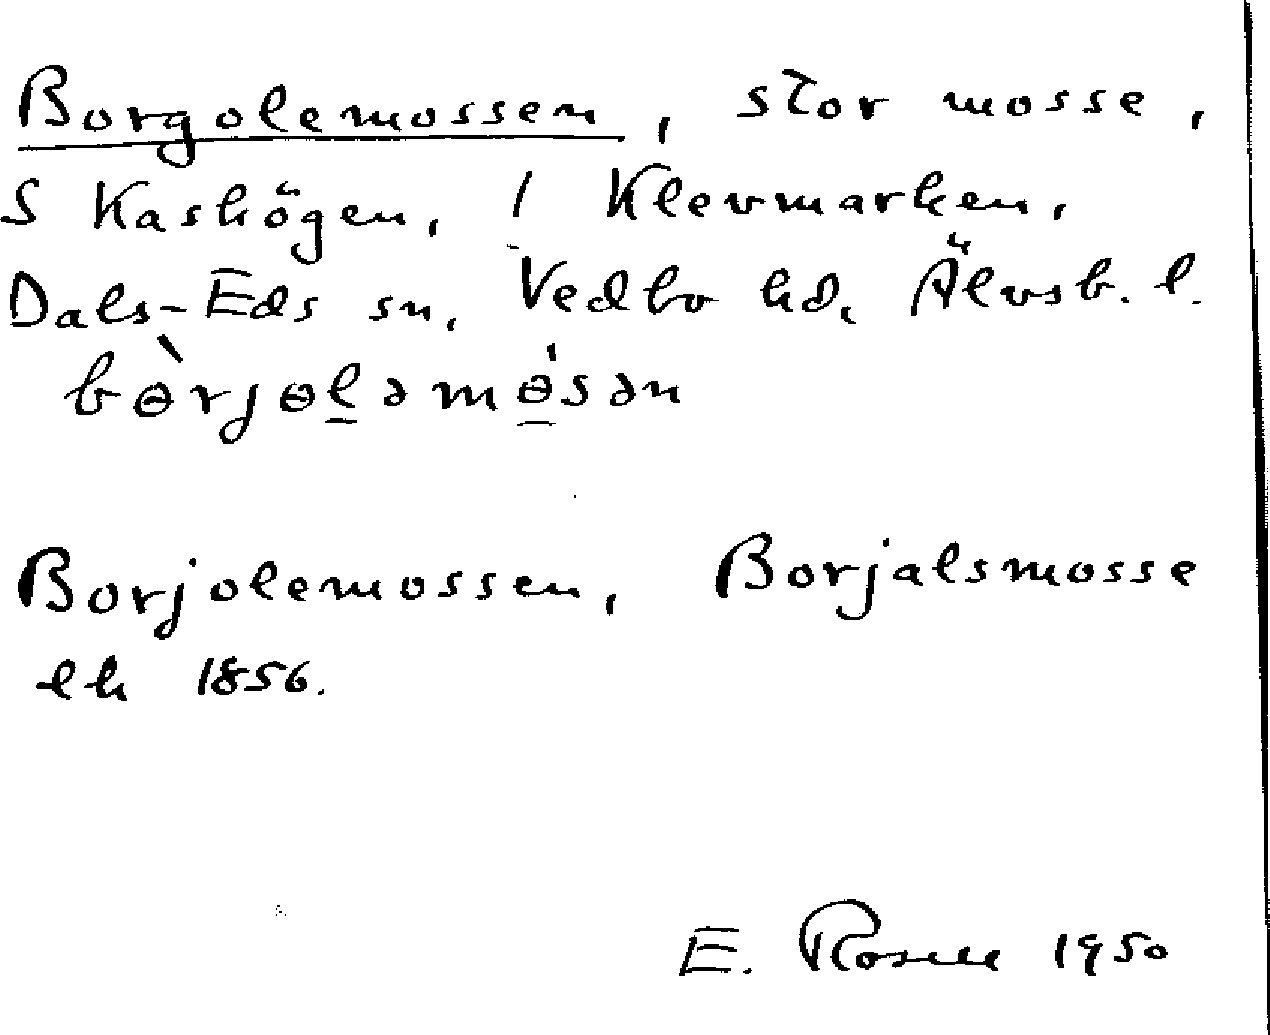 Borgolemossen, stor mosse,
S Kashögen, / Klevmarken,
Dals-Eds sn, Vedbo hd, Älvsb. l.
bɵ̀rjɵl̠əmɵ̠́sən
Borjolemossen, Borjalsmosse
ek 1856.
E. Rosell 1950